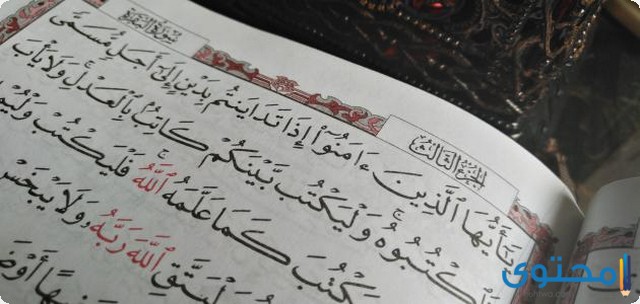 سورة البقرة
الجزء الثالث
يَٰٓأَيُّهَا ٱلَّذِينَ ءَامَنُوٓاْ إِذَا تَدَايَنتُم بِدَيْنٍ إِلَىٰٓ أَجَلٍ مُّسَمًّى
فَٱكْتُبُوهُ وَلْيَكْتُب بَّيْنَكُمْ كَاتِبٌۢ بِٱلْعَدْلِ وَلَا يَأْبَ
يَكْتُبَ كَمَا عَلَّمَهُ ٱللَّهُ فَلْيَكْتُبْ
وَلْيَتَّقِ ٱللَّهَ رَبَّهُۥ وَلَا يَبْخَسْ
محتوى